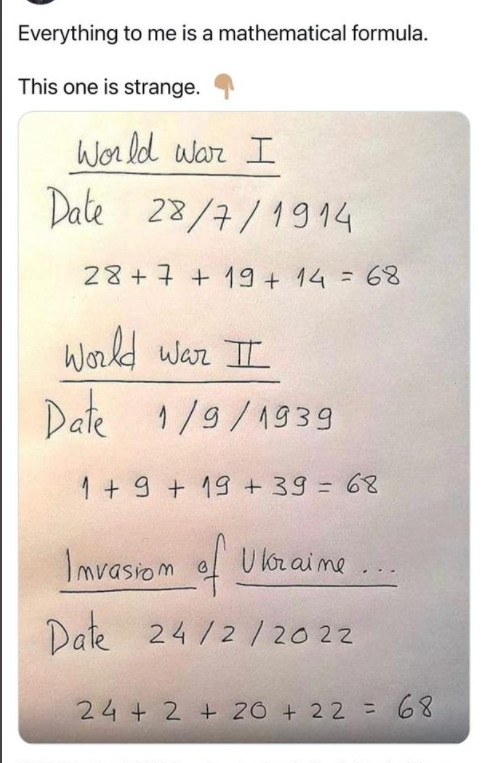 Everything to me is a mathematical formula.
This one is strange. 👇🏽
World War I
Date 28/7/1914
28+7 + 19 + 14 = 68
World War II
Date 1/9/1939
1 + 9 + 19 + 39 = 68
Invasion of Ukraine ...
Date 24/2/2022
24 + 2 + 20 + 22 = 68